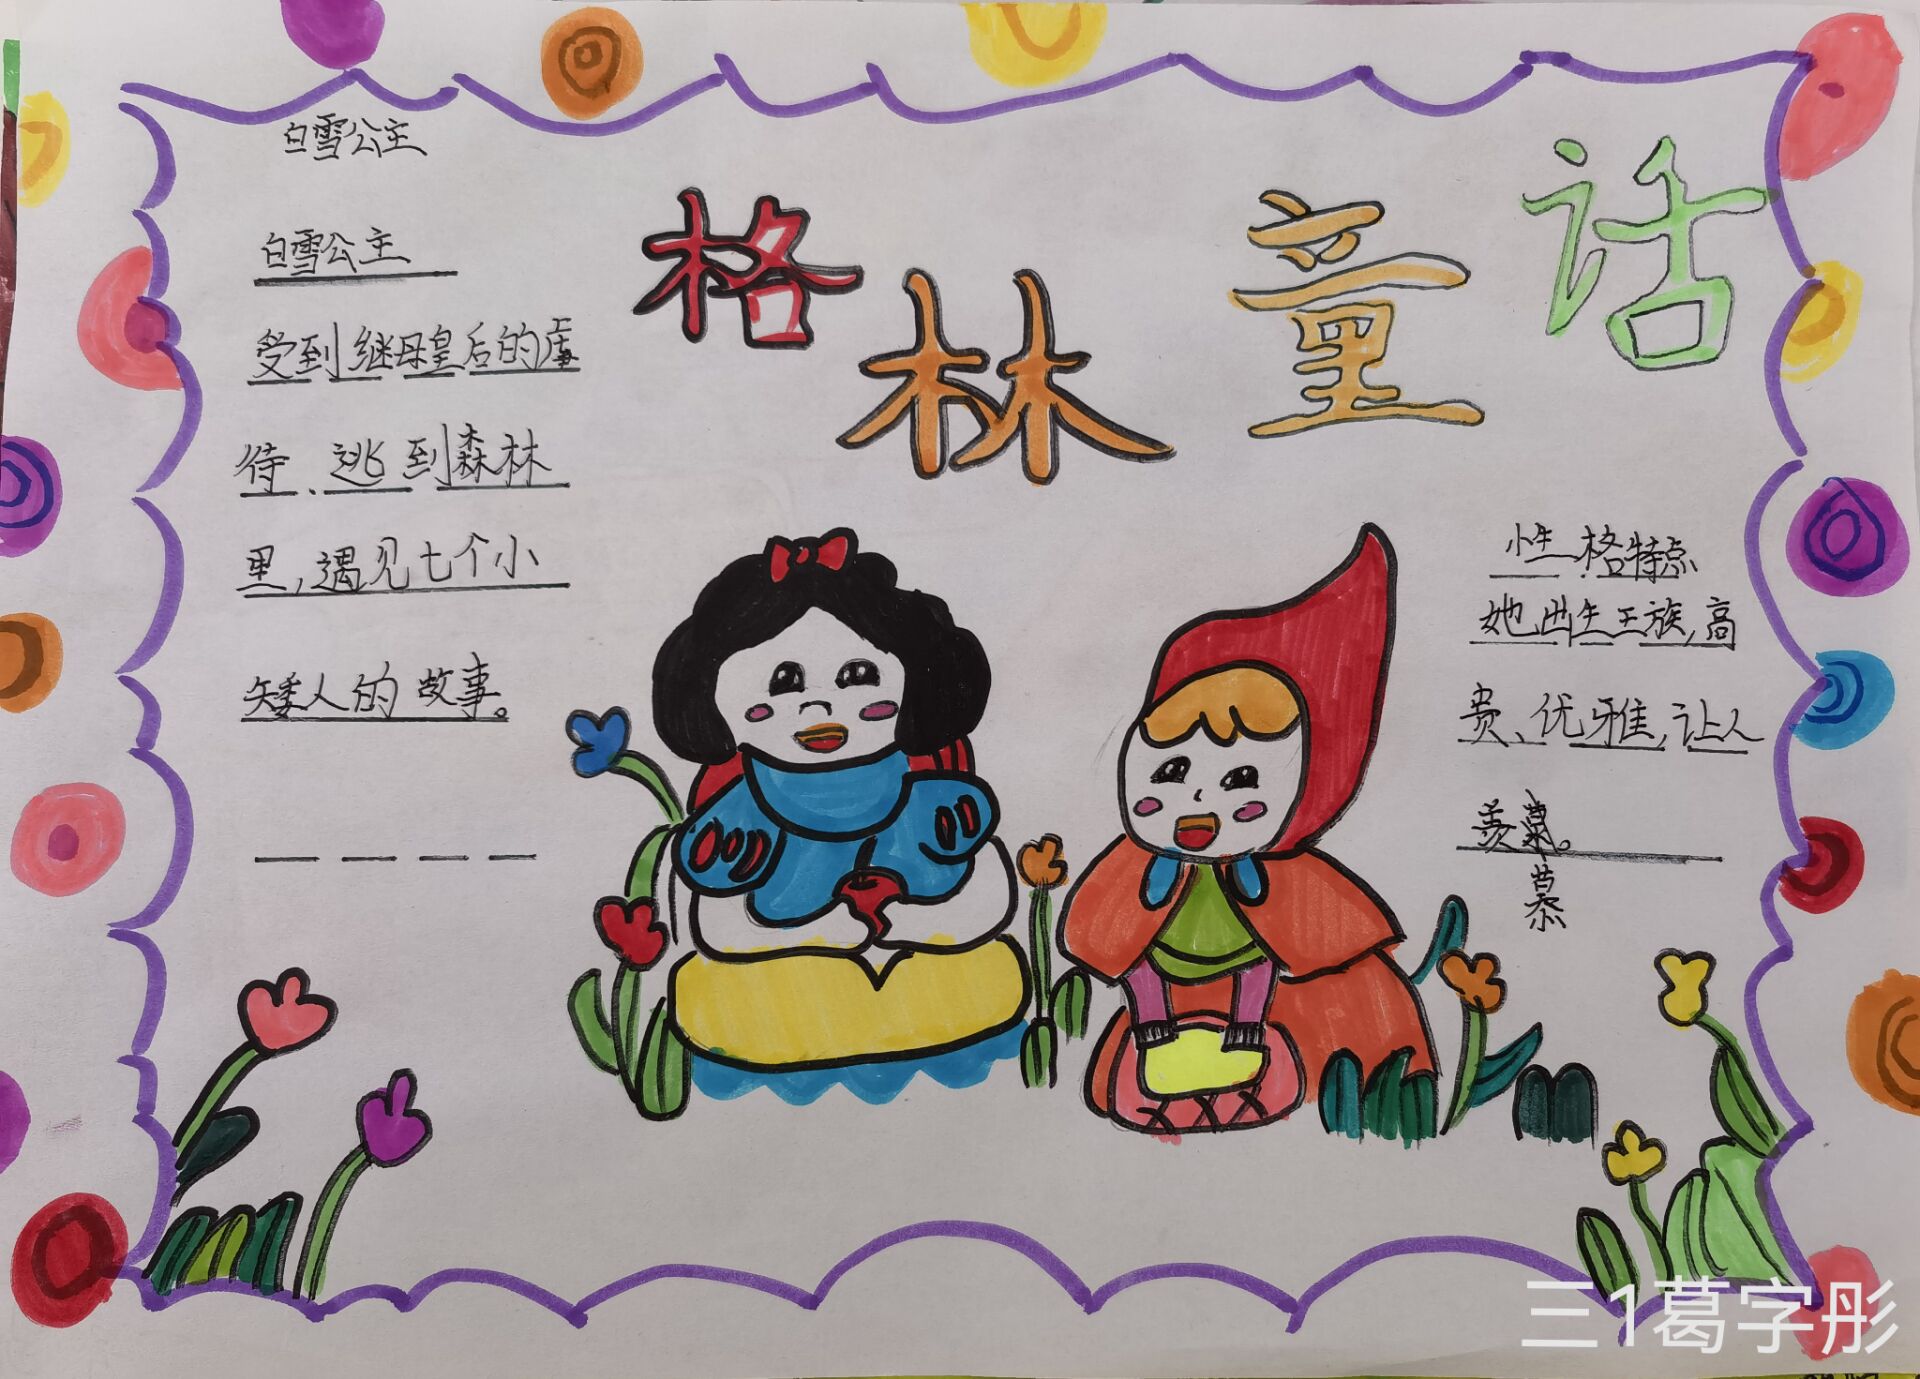 白雪公主
格林童话
白雪公主
受到继母皇后的虐
待、逃到森林
里,遇见七个小
矮人的故事。
性格特点
她出生王族,高
贵、优雅,让人
羡慕。
慕
三1葛字彤